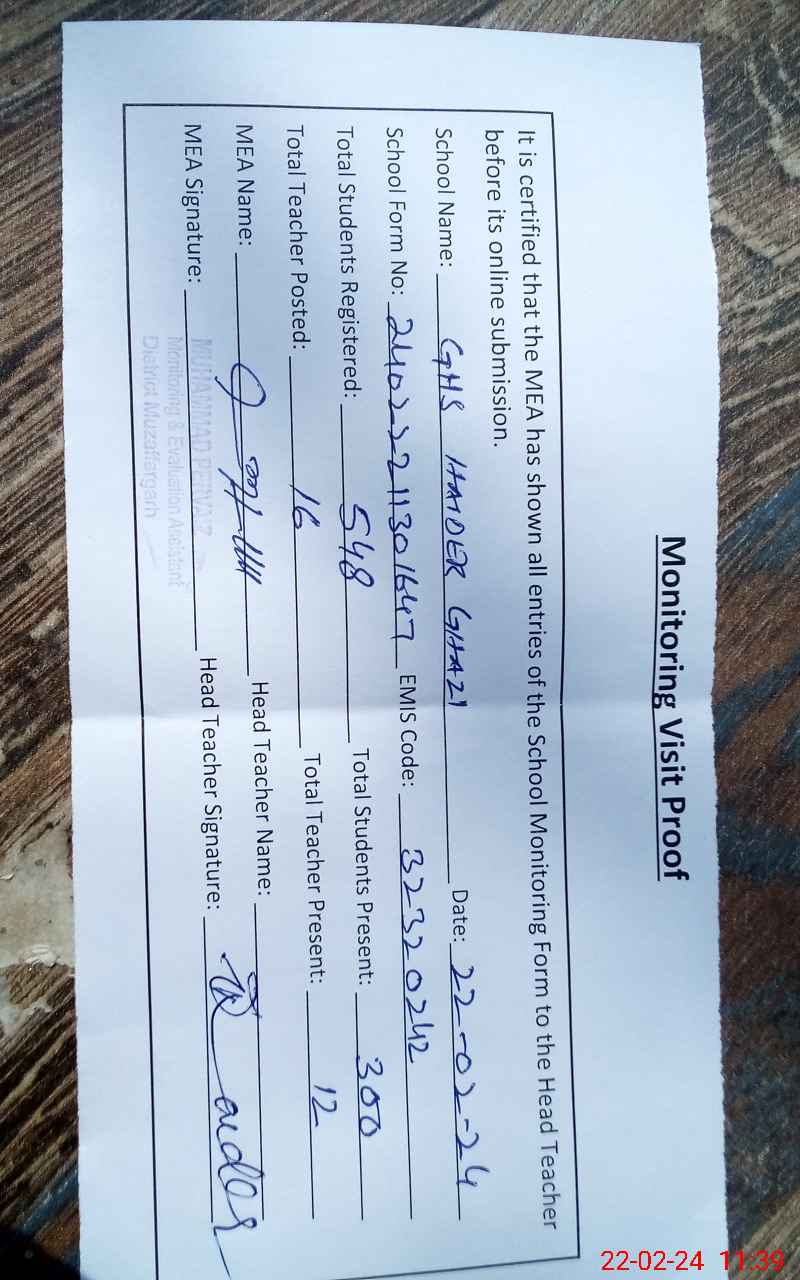 Monitoring Visit Proof
It is certified that the MEA has shown all entries of the School Monitoring Form to the Head Teacher
before its online submission.
School Name: GHS HAIDER GHAZI Date: 22-02-24
School Form No: 24022211301647 EMIS Code: 32320242
Total Students Registered: 548 Total Students Present: 300
Total Teacher Posted: 16 Total Teacher Present: 12
MEA Name: Head Teacher Name:
MEA Signature: Head Teacher Signature:
MUHAMMAD PERVAIZ
Monitoring & Evaluation Assistant
District Muzaffargarh
22-02-24 11:39